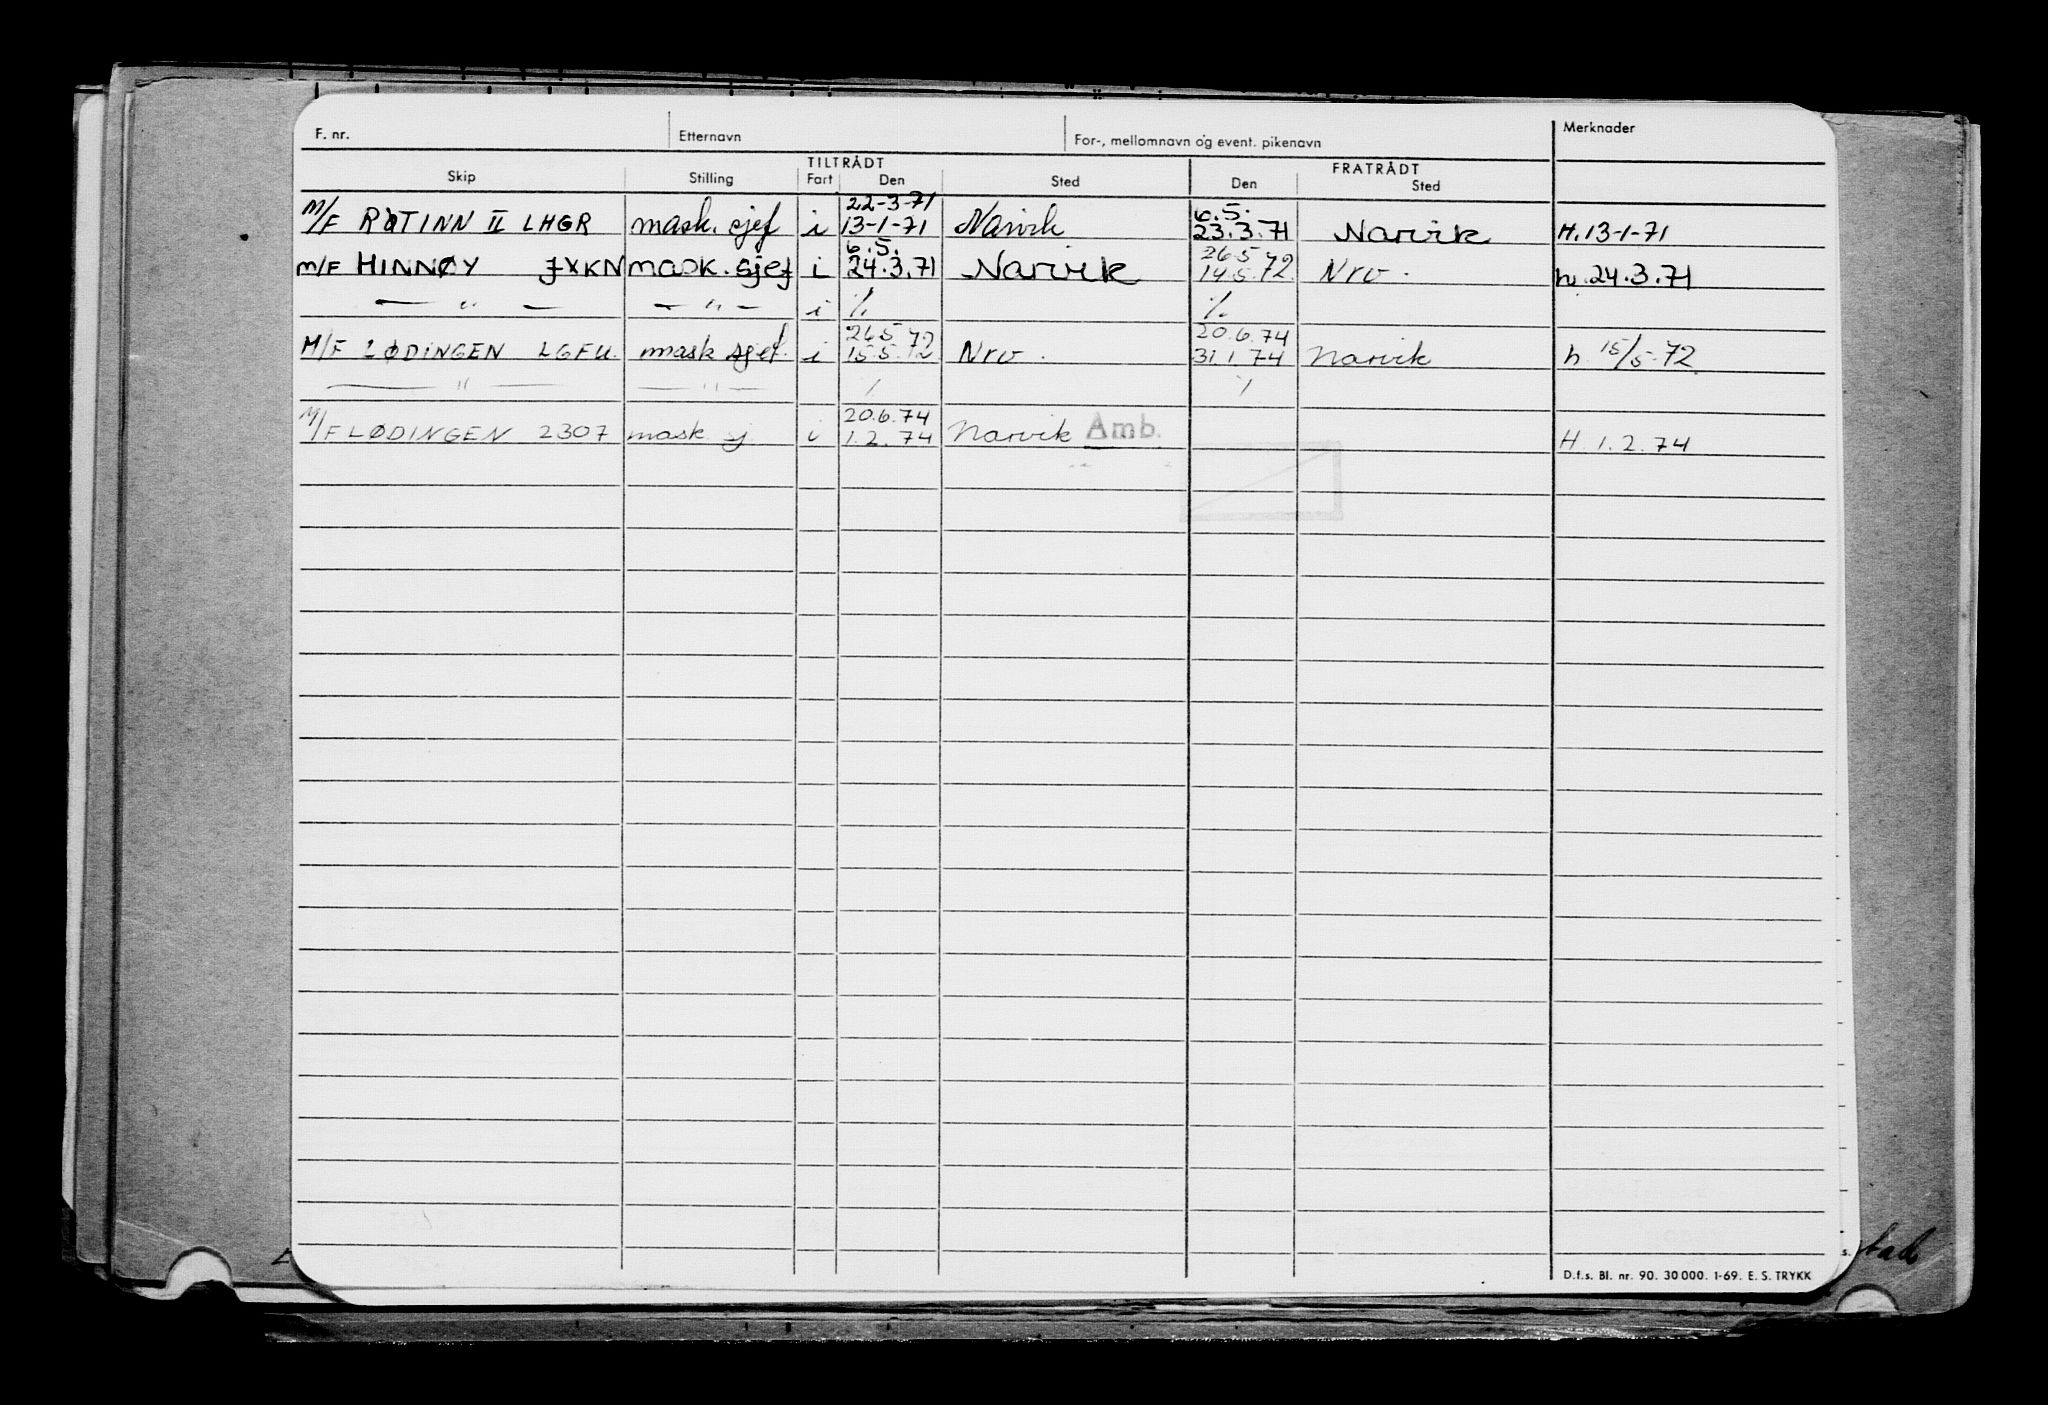 F. nr. Etternavn For-, mellomnavn og event. pikenavn Merknader
TILTRÅDT FRATRÅDT
Skip Stilling Fart Den Sted Den Sted
22-3-71 6.5.
M/F ROTINN II LHGR mask. sjef i 13-1-71 Narvik 23.3.71 Narvik H. 13-1-71
6.5. 26.5.72
M/F HINNØY JXKN mask. sjef i 24.3.71 Narvik 14.5.72 Nrv. h. 24.3.71
— " — — " — i %. %.
26.5.72 20.6.74
M/F LØDINGEN LGFU. mask sjef. i 15.5.72 Nrv. 31.1.74 Narvik h. 15/5-72
— " — — " — % %
20.6.74
M/F LØDINGEN 2307 mask sj. i 1.2.74 Narvik Amb. H. 1.2.74
s. stad
D.f.s. Bl. nr. 90. 30 000. 1-69. E. S. TRYKK